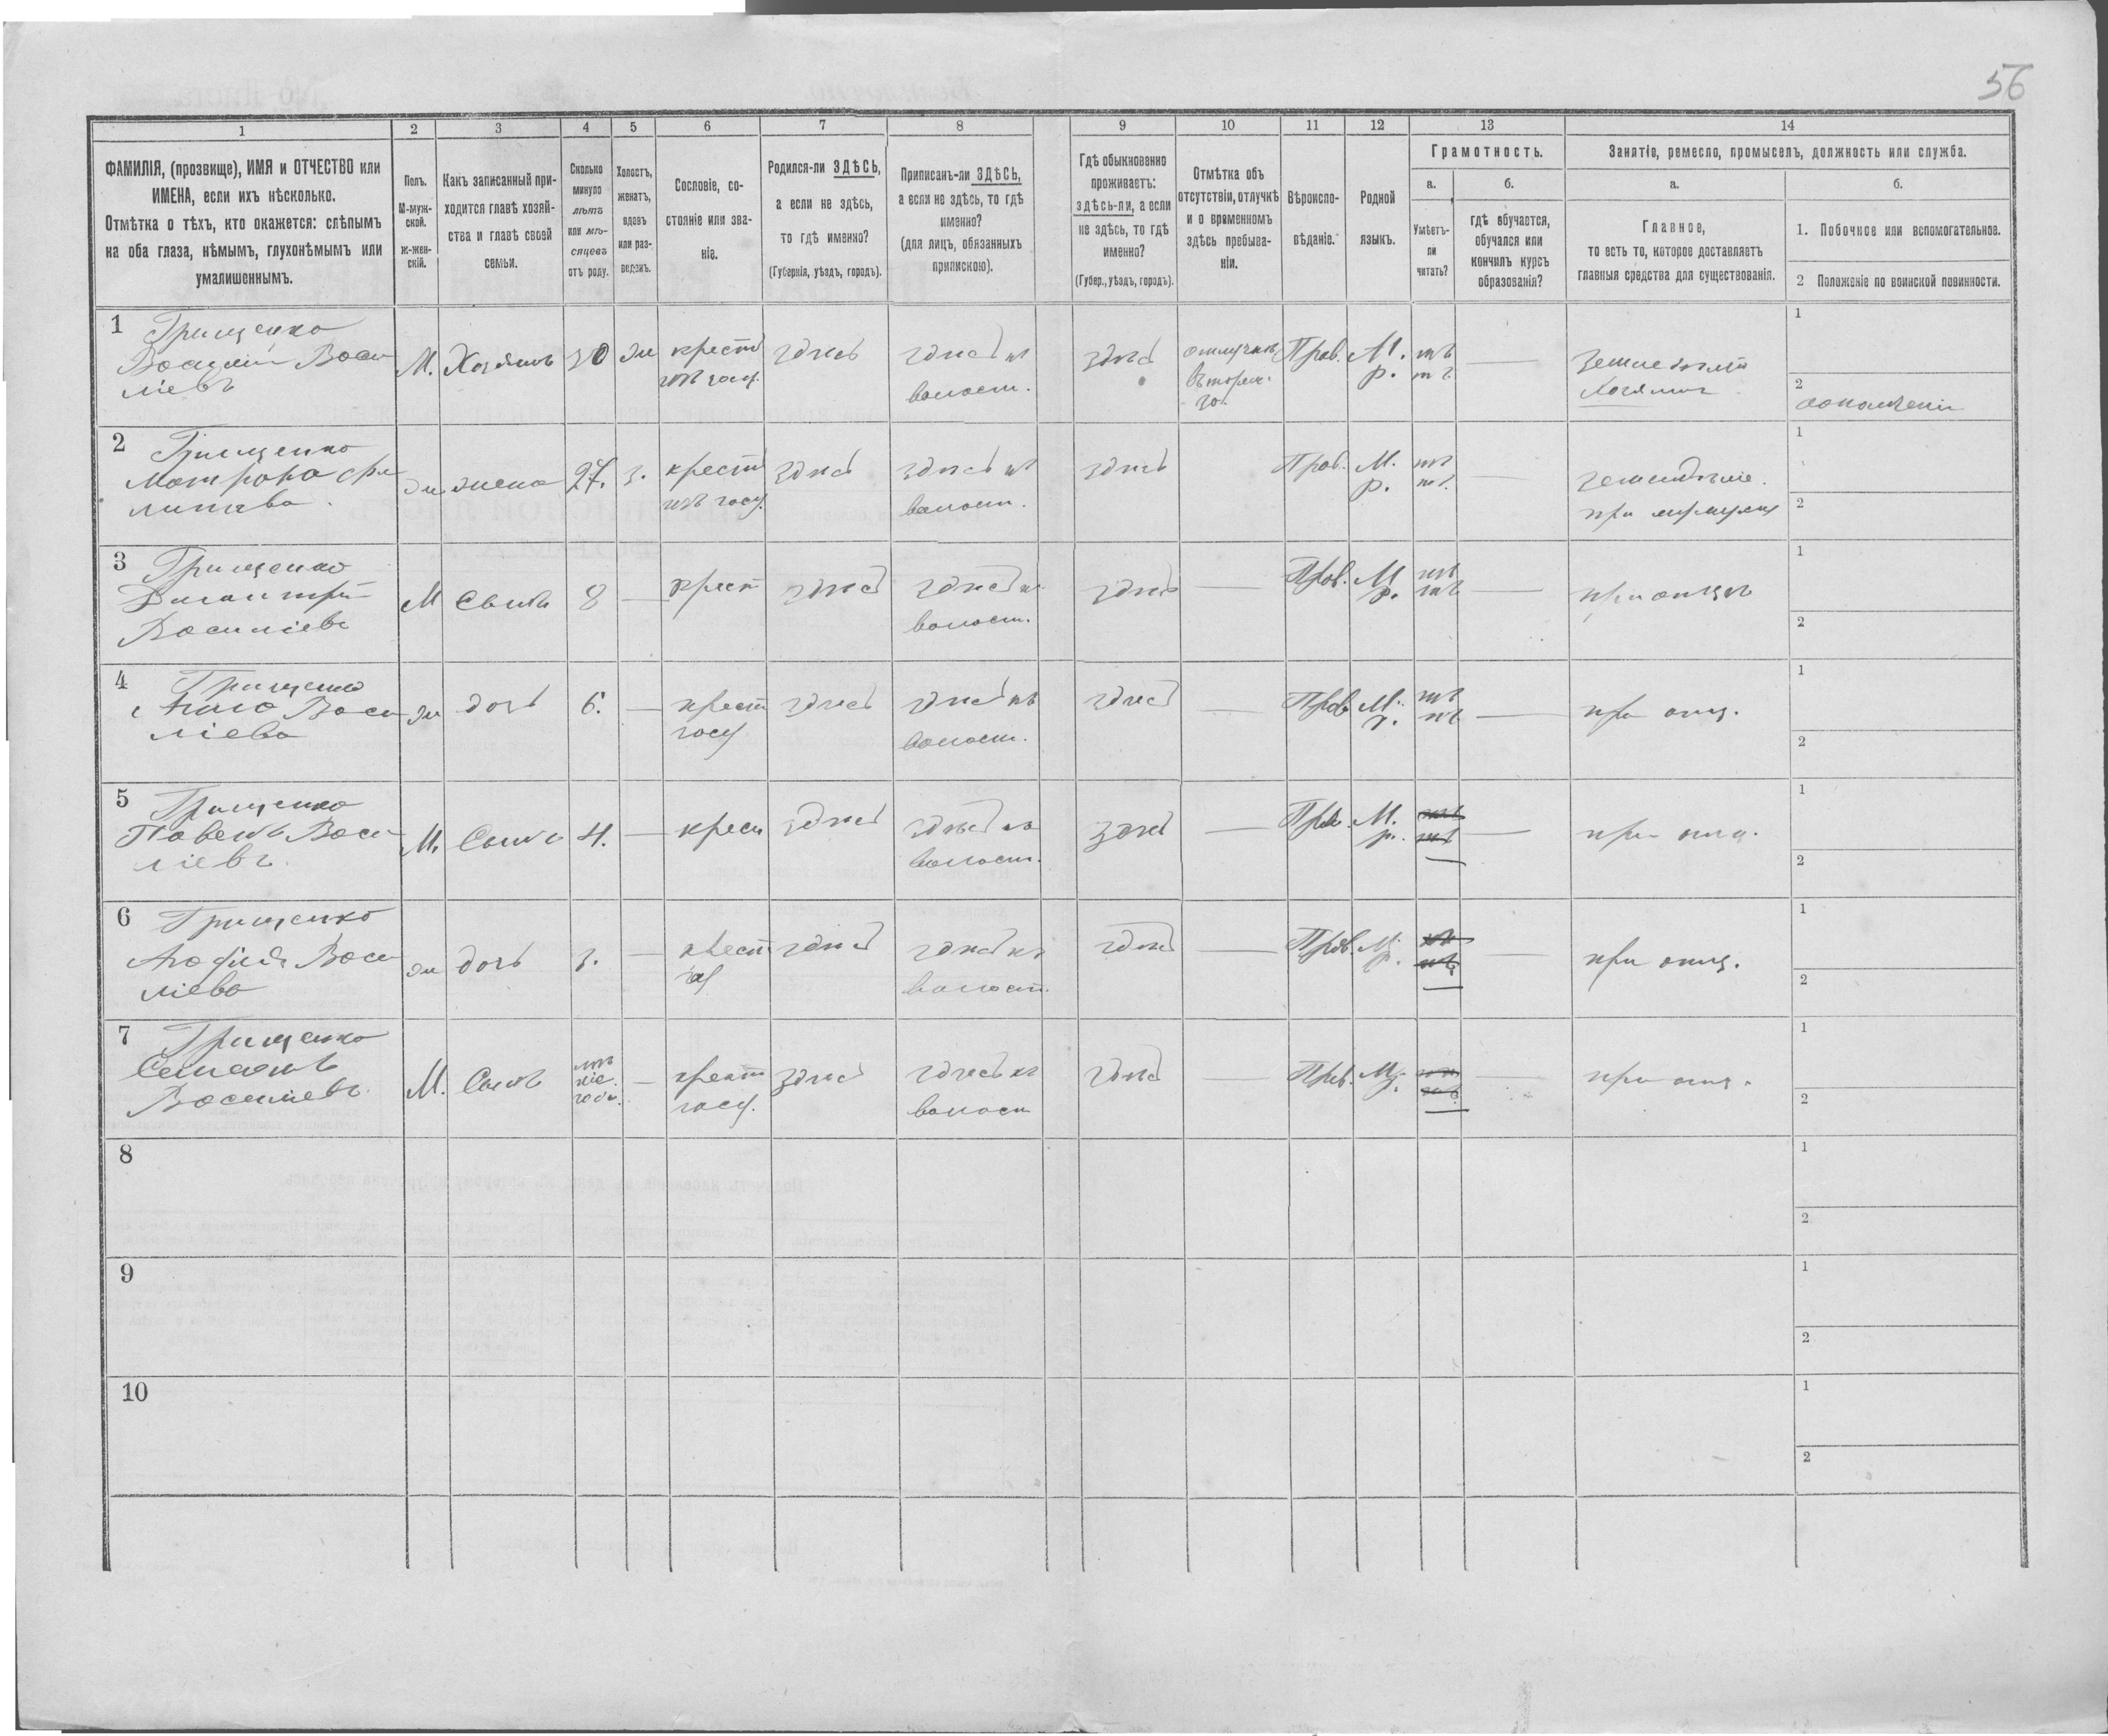 56
1 2 3 4 5 6 7 8 9 10 11 12 13 14
ФАМИЛІЯ, (прозвище), ИМЯ и ОТЧЕСТВО или
ИМЕНА, если ихъ нѣсколько.
Отмѣтка о тѣхъ, кто окажется: слѣпымъ
на оба глаза, нѣмымъ, глухонѣмымъ или
умалишеннымъ.
Полъ.
М-муж-
ской.
ж-жен-
скій.
Какъ записанный при-
ходится главѣ хозяй-
ства и главѣ своей
семьи.
Сколько
минуло
лѣтъ
или мѣ-
сяцевъ
отъ роду.
Холостъ,
женатъ,
вдовъ
или раз-
веденъ.
Сословіе, со-
стояніе или зва-
ніе.
Родился-ли ЗДѢСЬ,
а если не здѣсь,
то гдѣ именно?
(Губернія, уѣздъ, городъ).
Приписанъ-ли ЗДѢСЬ,
а если не здѣсь, то гдѣ
именно?
(для лицъ, обязанныхъ
припискою).
Гдѣ обыкновенно
проживаетъ:
здѣсь-ли, а если
не здѣсь, то гдѣ
именно?
(Губер., уѣздъ, городъ).
Отмѣтка объ
отсутствіи, отлучкѣ
и о временномъ
здѣсь пребыва-
ніи.
Вѣроиспо-
вѣданіе.
Родной
языкъ.
Грамотность.
а.
Умѣетъ-
ли
читать?
б.
гдѣ обучается,
обучался или
кончилъ курсъ
образованія?
Занятіе, ремесло, промыселъ, должность или служба.
а.
Главное,
то есть то, которое доставляетъ
главныя средства для существованія.
б.
1. Побочное или вспомогательное.
2 Положеніе по воинской повинности.
1 Грищенко
Василій Васи
ліевъ
М. Хозяинъ 30 ж крест
изъ госу.
здѣсь
здѣсь въ
волост.
здѣсь
Прав. М.
р.
нѣ
тъ
Хозяинъ
1
2
2 Грищенко
Матрона Фи
липова
ж жена 27. з. крест
изъ госу.
здѣсь
здѣсь въ
волост.
здѣсь
Прав. М.
р.
нѣ
тъ
земледѣліе.
1
2
3 Грищенко
Димитрій
Василіевъ
М Сынъ 8 — крест здѣсь
здѣсь въ
волост.
здѣсь — Прав. М
р.
нѣ
тъ
— при отцѣ
1
2
4 Грищенко
Анна Васи
ліева
ж дочь 6. — крест
госу
здѣсь
здѣсь въ
волост.
здѣсь — Прав М.
р.
нѣ
тъ
— при отц.
1
2
5 Грищенко
Павелъ Васи
ліевъ.
М. Сынъ 4. — крест здѣсь
здѣсь въ
волост.
здѣсь — Прав. М.
р.
нѣ
тъ
— при отц.
1
2
6 Грищенко
Васи
ліева
ж дочь 3. — крест
здѣсь
здѣсь въ
волост.
здѣсь — Прав. М.
р.
— при отц.
1
2
7 Грищенко
Семенъ
Василіевъ.
М. Сынъ
— крест
госу.
здѣсь
здѣсь въ
волост
здѣсь — Прав. М.
р.
— при отц.
1
2
8
1
2
9
1
2
10
1
2